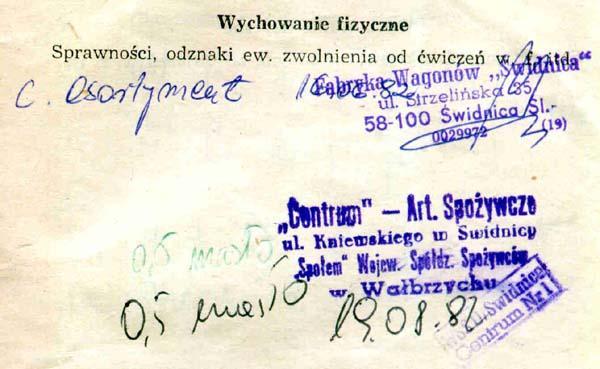 Wychowanie fizyczne
Sprawności, odznaki ew. zwolnienia od ćwiczeń w. f. itd.
Fabryka Wagonów „Świdnica"
c. asortyment 10.08.82
ul. Strzelińska 35
58-100 Świdnica Śl.-
0029972 (19)
„Centrum" — Art. Spożywcze
ul. Kniewskiego w Świdnicy
„Społem" Wojew. Spółdz. Spożywców
w Wałbrzychu
0,5 masło
0,5 masło 19.08.82
Świdnica
Centrum Nr 1